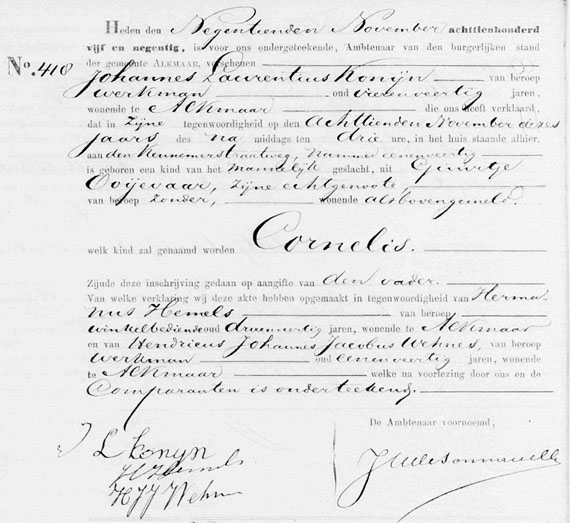 Heden den Negentienden November achttienhonderd
vijf en negentig, is voor ons ondergeteekende, Ambtenaar van den burgerlijken stand
der gemeente ALKMAAR, verschenen
No. 418
Johannes Laurentius Konijn van beroep
werkman oud vierenveertig jaren,
wonende te Alkmaar die ons heeft verklaard,
dat in Zijne tegenwoordigheid op den Achttienden November dezes
jaars des na middags ten drie ure, in het huis staande alhier
aan den Kennemerstraatweg, nummer eenenveertig
is geboren een kind van het mannelijk geslacht, uit Geertje
Ooijevaar, zijne echtgenoote
van beroep zonder, wonende alsbovengemeld.
welk kind zal genaamd worden Cornelis.
Zijnde deze inschrijving gedaan op aangifte van den vader.
Van welke verklaring wij deze akte hebben opgemaakt in tegenwoordigheid van Herma-
nus Hemels van beroep
winkelbediende oud drieenveertig jaren, wonende te Alkmaar
en van Hendricus Johannes Jacobus Wehnes, van beroep
werkman oud eenenveertig jaren, wonende
te Alkmaar welke na voorlezing door ons en de
Comparanten is onderteekend.
De Ambtenaar voornoemd,
L Konyn
H Hemels
HJJ Wehnes